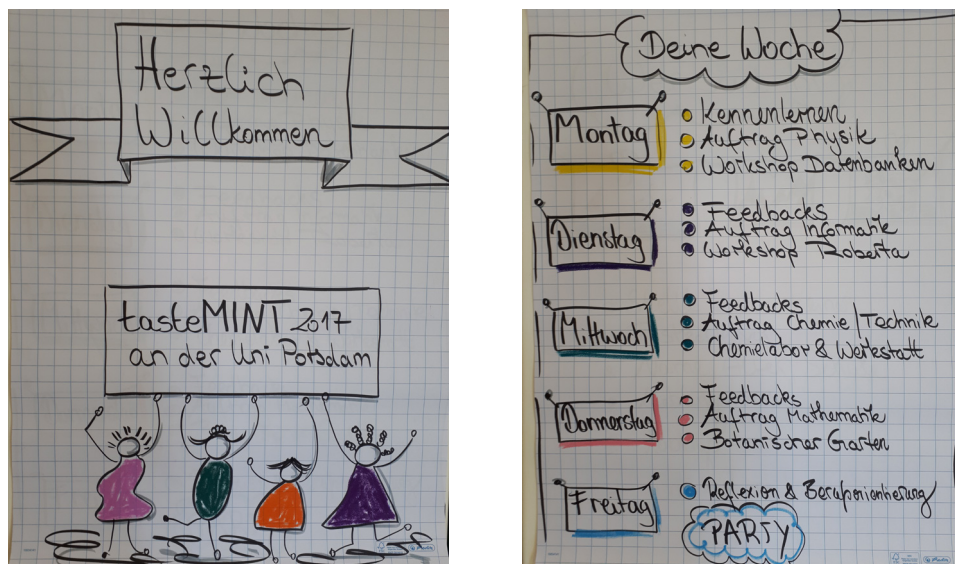 Herzlich
Willkommen
tasteMINT 2017
an der Uni Potsdam
Deine Woche
Montag
Kennenlernen
Auftrag Physik
Workshop Datenbanken
Dienstag
Feedbacks
Auftrag Informatik
Workshop Roberta
Mittwoch
Feedbacks
Auftrag Chemie/Technik
Chemielabor & Werkstatt
Donnerstag
Feedbacks
Auftrag Mathematik
Botanischer Garten
Freitag
Reflexion & Berufsorientierung
PARTY